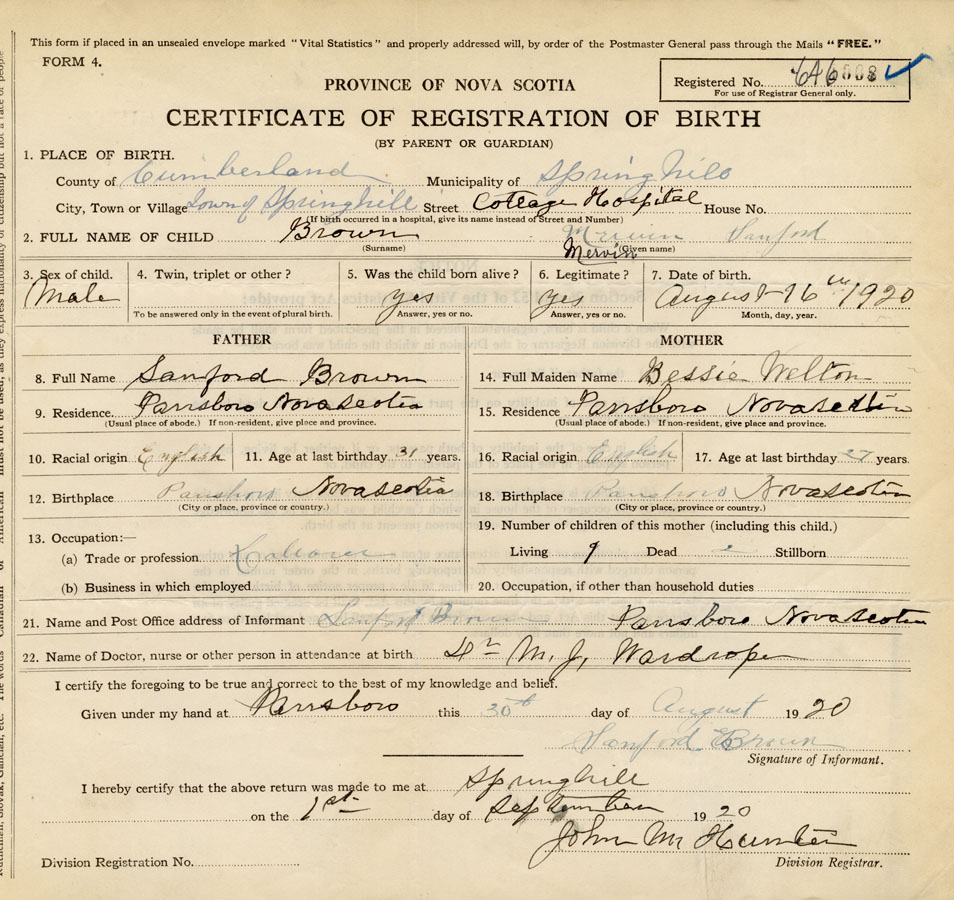 This form if placed in an unsealed envelope marked "Vital Statistics" and properly addressed will, by order of the Postmaster General pass through the Mails "FREE."
FORM 4.
Registered No. 646
For use of Registrar General only.
PROVINCE OF NOVA SCOTIA
CERTIFICATE OF REGISTRATION OF BIRTH
(BY PARENT OR GUARDIAN)
1. PLACE OF BIRTH.
County of Cumberland Municipality of Springhill
City, Town or Village Town of Springhill Street Cottage Hospital House No.
(If birth occurred in a hospital, give its name instead of Street and Number)
2. FULL NAME OF CHILD Brown Mervin Sanford
(Surname) Mervin (Given name)
3. Sex of child. 4. Twin, triplet or other? 5. Was the child born alive? 6. Legitimate? 7. Date of birth.
Male yes yes August 16th 1920
To be answered only in the event of plural birth. Answer, yes or no. Answer, yes or no. Month, day, year.
FATHER MOTHER
8. Full Name Sanford Brown 14. Full Maiden Name Bessie Welton
9. Residence. Parrsboro Novascotia 15. Residence Parrsboro Novascotia
(Usual place of abode.) If non-resident, give place and province. (Usual place of abode.) If non-resident, give place and province.
10. Racial origin English 11. Age at last birthday 31 years. 16. Racial origin English 17. Age at last birthday 27 years.
12. Birthplace Parrsboro Novascotia 18. Birthplace Parrsboro Novascotia
(City or place, province or country.) (City or place, province or country.)
13. Occupation:— 19. Number of children of this mother (including this child.)
(a) Trade or profession Living 9 Dead Stillborn
(b) Business in which employed 20. Occupation, if other than household duties
21. Name and Post Office address of Informant Sanford Brown Parrsboro Novascotia
22. Name of Doctor, nurse or other person in attendance at birth Dr M. J. Wardrope
I certify the foregoing to be true and correct to the best of my knowledge and belief.
Given under my hand at Parrsboro this 30th day of August 1920
Sanford Brown
Signature of Informant.
I hereby certify that the above return was made to me at Springhill
on the 1st day of September 1920
John M Hunter
Division Registration No. Division Registrar.